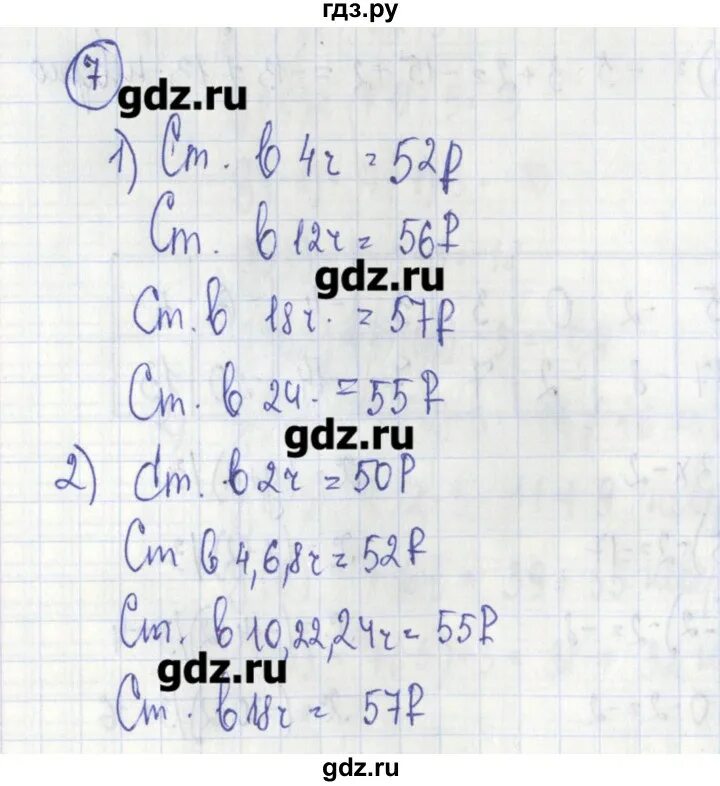 гдз.ру
7
gdz.ru
1) Ст. в 4ч = 52₽
Ст. в 12ч = 56₽
gdz.ru
Ст. в 18ч. = 57₽
Ст. в 24. = 55₽
gdz.ru
2) Ст. в 2ч = 50₽
Ст в 4,6,8ч = 52₽
Ст. в 10,22,24ч = 55₽
gdz.ru
Ст. в 18ч = 57₽
gdz.ru